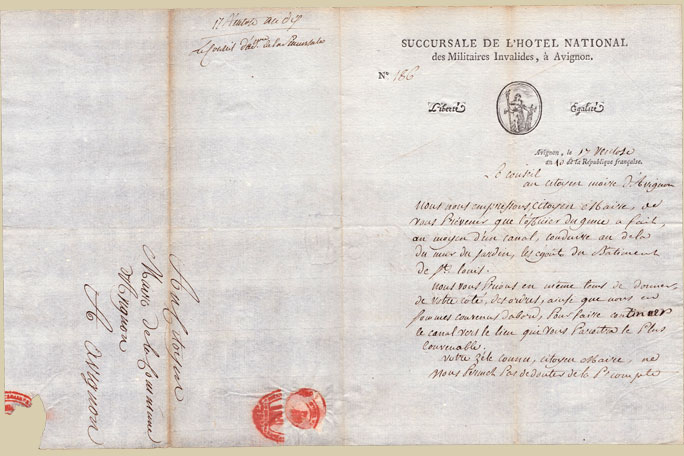 17 Ventose an dix
Le Conseil d'adm.on de la Succursale
Au Citoyen
Maire de la Commune
d'Avignon
A Avignon
SUCCURSALE DE L'HOTEL NATIONAL
des Militaires Invalides, à Avignon.
N° 186
Liberté Égalité
Avignon, le 17 Ventose
an 10 de la République française.
Le Conseil
au citoyen maire d'Avignon
Nous nous empressons, Citoyen Maire, de
vous Prévenir que l'officier du génie a fait,
au moyen d'un canal, conduire au dela
du mur du Jardin, les égoût du Batiment
de St. Louis.
Nous vous Prions en même tems de donner,
de votre coté, des ordres, ainsi que nous en
sommes convenus dabord, Pour faire continuer
le canal vers le lieu que vous Paraitra le Plus
Convenable.
Votre zèle connu, citoyen Maire, ne
nous Permet Pas de douter de la